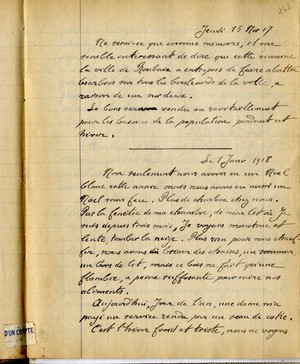 242
Jeudi 15 Nov 17
Ne serait-ce que comme mémoire, il me
semble intéressant de dire que cette semaine
la ville de Roubaix a entrepris de faire abattre
les arbres sur tous les boulevards de la ville, à
raison de un sur deux.
Le bois sera vendu au ravitaillement
pour les besoins de la population pendant cet
hiver.
Le 1 Janv 1918
Non seulement nous avons eu un Noël
blanc cette année mais nous avons eu aussi un
Noël sans feu. Plus de charbon chez nous.
Par la fenêtre de ma chambre, de mon lit où je
suis depuis trois mois, je voyais monotone et
lente, tomber la neige. Plus rien pour nous chauf-
fer, nous avons dû
un bois de lit, mais ce bois ne fait qu'une
flambée, à peine suffisante pour cuire nos
aliments.
Aujourd'hui, Jour de l'an, une dame m'a
payé un service rendu par un seau de coke.
C'est l'hiver froid et triste, nous ne voyons
D'UN COMPTE